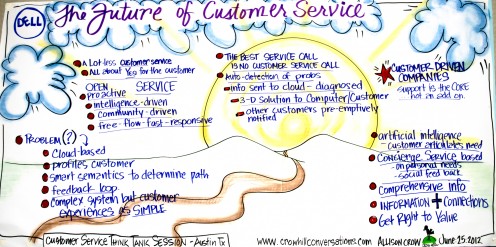 DELL
The Future of Customer Service
A Lot less customer service
All about Yes for the customer
OPEN SERVICE
Proactive
intelligence-driven
Community-driven
free-flow-fast-responsive
THE BEST SERVICE CALL
IS NO CUSTOMER SERVICE CALL
Auto-detection of probs
info sent to cloud - diagnosed
3-D Solution to Computer/Customer
other customers pre-emptively
notified
CUSTOMER DRIVEN
COMPANIES
support is the CORE
not an add on.
PROBLEM(?)
Cloud-based
profiles customer
smart semantics to determine path
feedback loop
Complex system but customer
experiences as SIMPLE
artificial intelligence
- customer articulates need
Concierge Service based
- on personal needs
- social feed back
Comprehensive info
INFORMATION + Connections
Get Right to Value
Customer Service THINK TANK SESSION - Austin TX
www.crowhillconversations.com
ALLISON CROW
June 25.2012